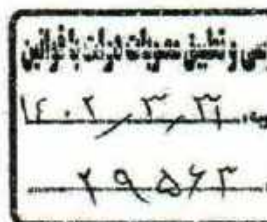 سی و تطبیق مصوبات دولت با قوانین
۱۴۰۲/۳/۳۱
۲۹۵۶۳